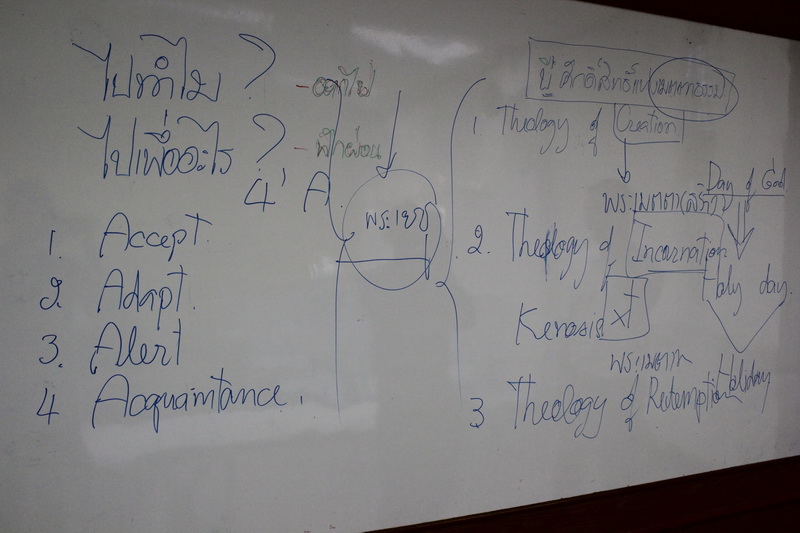 ไปทำไม ?
ไปเพื่ออะไร ? - พักผ่อน
4' A.
1. Accept.
2. Adapt.
3. Alert
4 Acquaintance.
พระเยซู
ปีศักดิ์สิทธิ์แห่งเมตตาธรรม
1 Theology of Creation
พระเมตตา(สร้าง)
Day of God
2. Theology of Incarnation
Holy day.
Kenosis XT
พระเมตตา
Holiday
3 Theology of Redemption